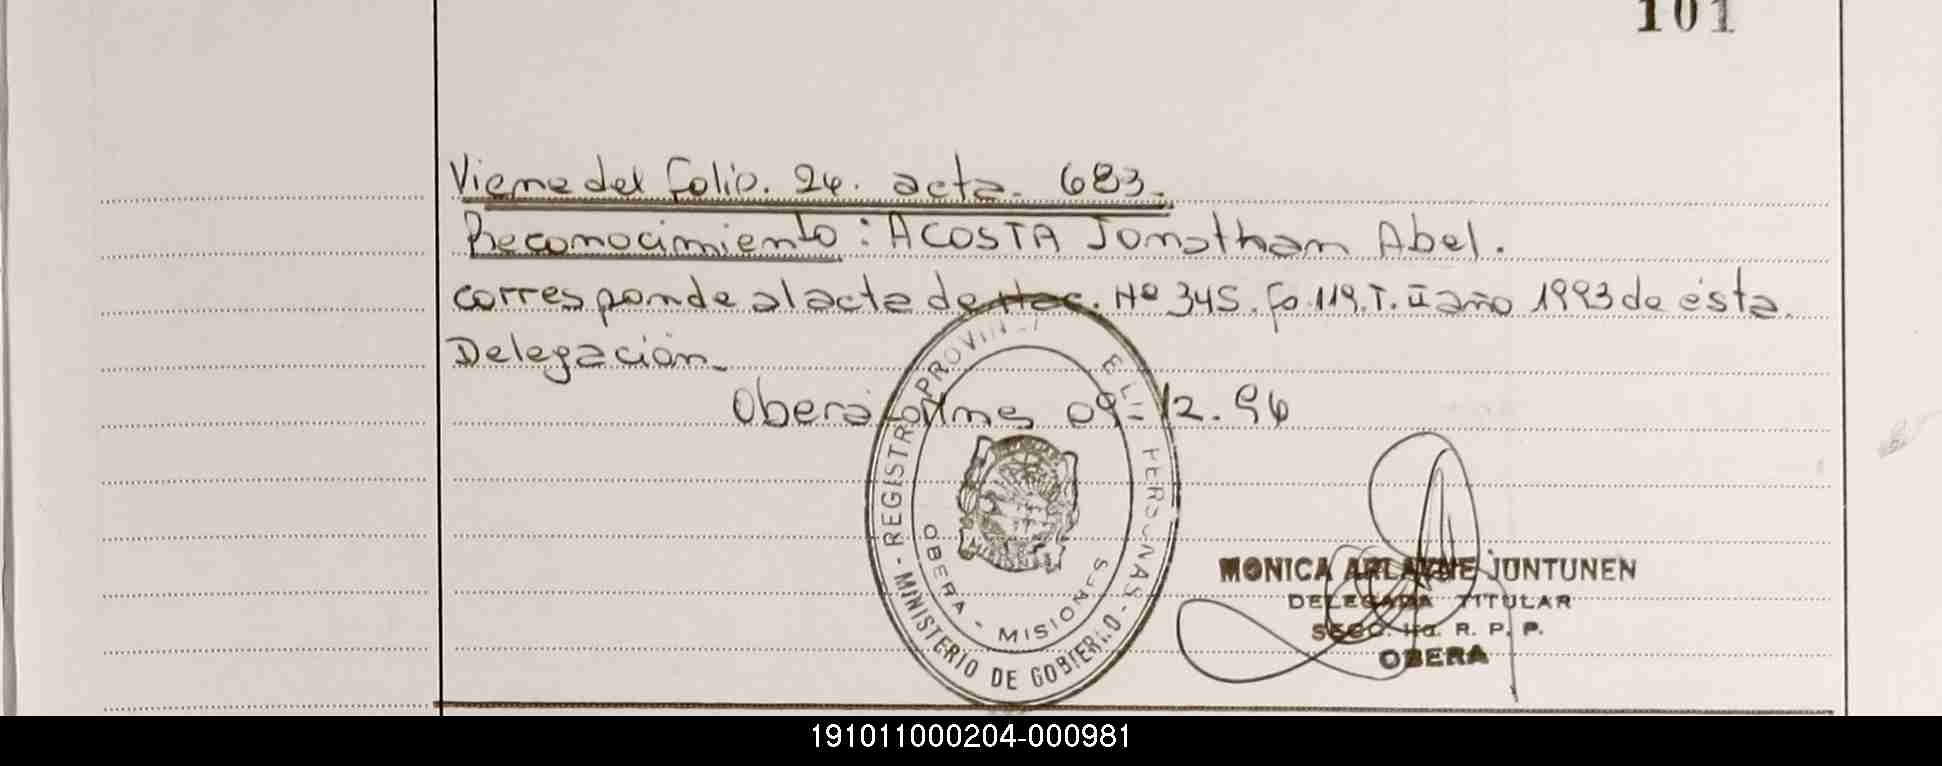 101
Viene del folio. 24. acta. 683.
Reconocimiento: ACOSTA Jonathan Abel.
corresponde al acta de Nac. Nº 345. Fo 119. T. II año 1993 de ésta.
Delegación.
Oberá, Mnes 09-12.96
- REGISTRO PROVIN PERSONAS -
MINISTERIO DE GOBIERNO
OBERA - MISIONES
MONICA ARLAYNE JUNTUNEN
DELEGADA TITULAR
SECC. R. P. P.
OBERA
191011000204-000981